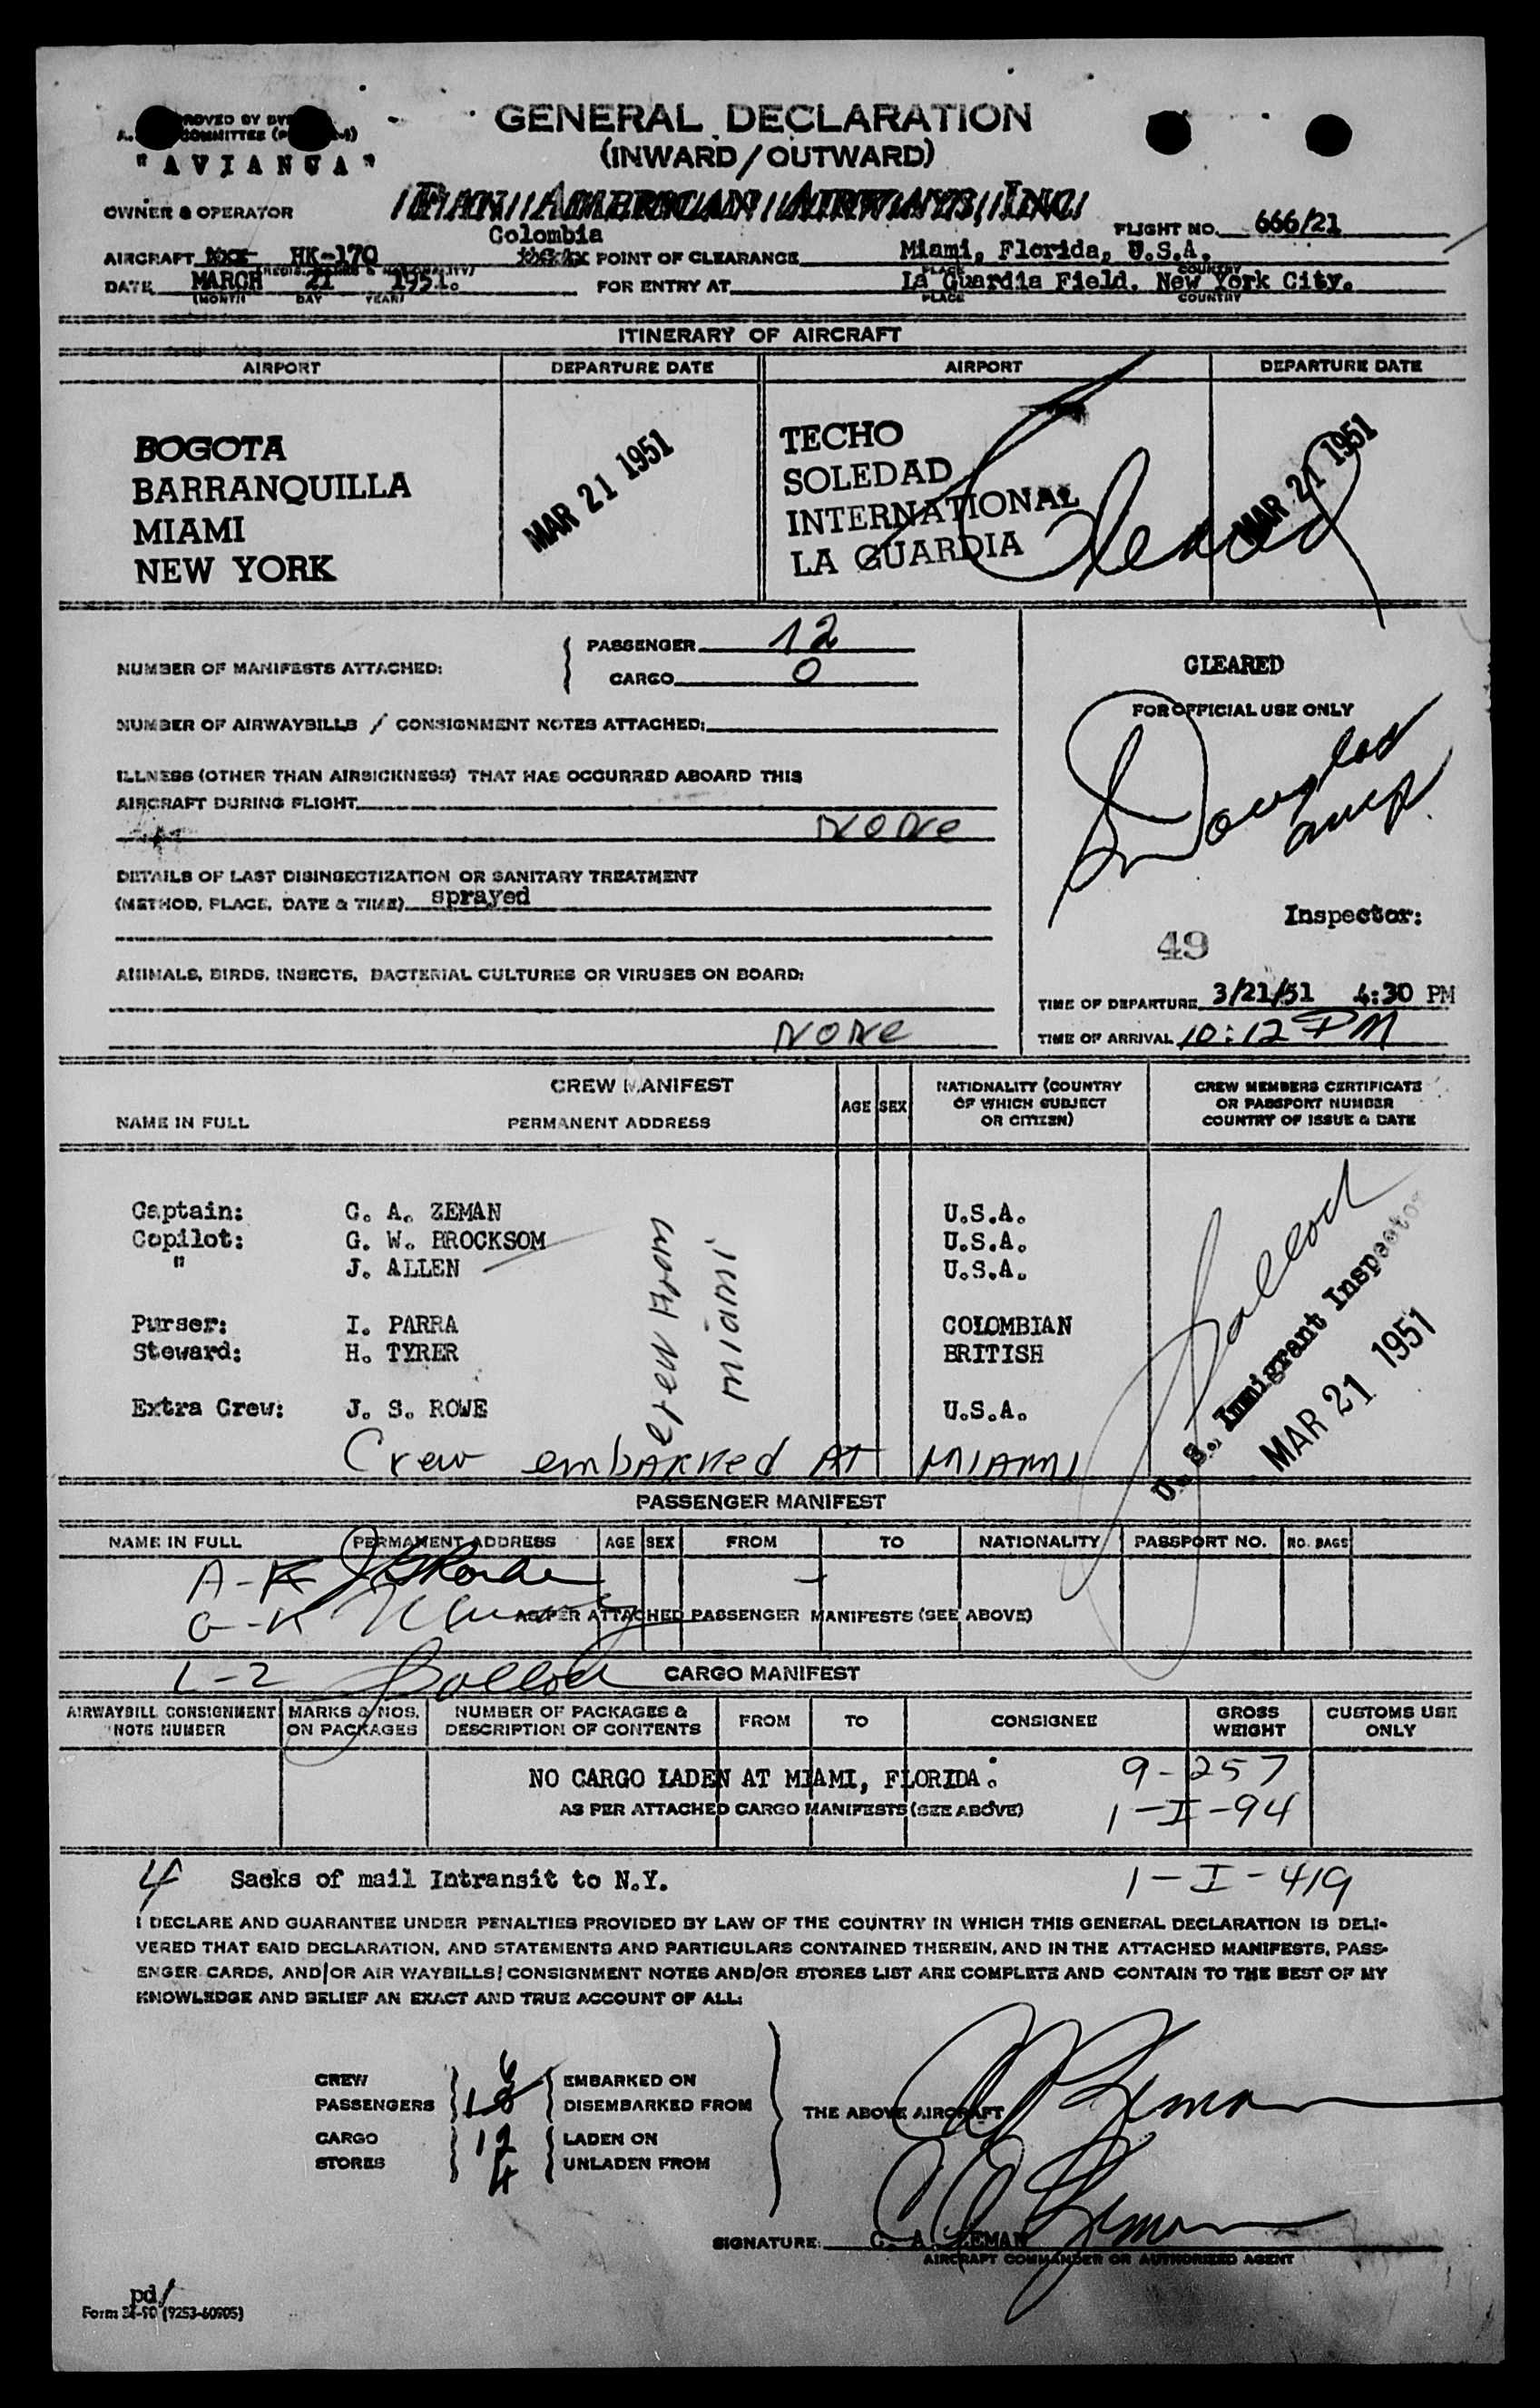 GENERAL DECLARATION
(INWARD/OUTWARD)
"AVIANCA"
OWNER & OPERATOR
PAN AMERICAN AIRWAYS, INC.
FLIGHT NO. 666/21
Colombia
AIRCRAFT HK-170 POINT OF CLEARANCE Miami, Florida, U.S.A.
(REGIS. MARKS & NATIONALITY) PLACE COUNTRY
DATE MARCH 21 1951. FOR ENTRY AT La Guardia Field. New York City.
(MONTH DAY YEAR) PLACE COUNTRY
ITINERARY OF AIRCRAFT
AIRPORT DEPARTURE DATE AIRPORT DEPARTURE DATE
BOGOTA TECHO
BARRANQUILLA MAR 21 1951 SOLEDAD MAR 21 1951
MIAMI INTERNATIONAL
NEW YORK LA GUARDIA
Cleared
NUMBER OF MANIFESTS ATTACHED: PASSENGER 12
CARGO 0
CLEARED
FOR OFFICIAL USE ONLY
NUMBER OF AIRWAYBILLS / CONSIGNMENT NOTES ATTACHED:
ILLNESS (OTHER THAN AIRSICKNESS) THAT HAS OCCURRED ABOARD THIS
AIRCRAFT DURING FLIGHT
None
DETAILS OF LAST DISINSECTIZATION OR SANITARY TREATMENT
(METHOD, PLACE, DATE & TIME) sprayed
Inspector:
49
ANIMALS, BIRDS, INSECTS, BACTERIAL CULTURES OR VIRUSES ON BOARD:
None
TIME OF DEPARTURE 3/21/51 4:30 PM
TIME OF ARRIVAL 10:12 PM
CREW MANIFEST
NAME IN FULL PERMANENT ADDRESS AGE SEX NATIONALITY (COUNTRY OF WHICH SUBJECT OR CITIZEN) CREW MEMBERS CERTIFICATE OR PASSPORT NUMBER COUNTRY OF ISSUE & DATE
Captain: C. A. ZEMAN U.S.A.
Copilot: G. W. BROCKSOM U.S.A.
" J. ALLEN U.S.A.
Purser: I. PARRA COLOMBIAN
Steward: H. TYRER BRITISH
Extra Crew: J. S. ROWE U.S.A.
crew from
miami
U. S. Immigrant Inspector
MAR 21 1951
Crew embarked AT MIAMI
PASSENGER MANIFEST
NAME IN FULL PERMANENT ADDRESS AGE SEX FROM TO NATIONALITY PASSPORT NO. NO. BAGS
A-F
G-K
AS PER ATTACHED PASSENGER MANIFESTS (SEE ABOVE)
L-Z
CARGO MANIFEST
AIRWAYBILL CONSIGNMENT NOTE NUMBER MARKS & NOS. ON PACKAGES NUMBER OF PACKAGES & DESCRIPTION OF CONTENTS FROM TO CONSIGNEE GROSS WEIGHT CUSTOMS USE ONLY
NO CARGO LADEN AT MIAMI, FLORIDA. 9-257
AS PER ATTACHED CARGO MANIFESTS (SEE ABOVE) 1-I-94
4 Sacks of mail Intransit to N.Y. 1-I-419
I DECLARE AND GUARANTEE UNDER PENALTIES PROVIDED BY LAW OF THE COUNTRY IN WHICH THIS GENERAL DECLARATION IS DELI-
VERED THAT SAID DECLARATION, AND STATEMENTS AND PARTICULARS CONTAINED THEREIN, AND IN THE ATTACHED MANIFESTS, PASS-
ENGER CARDS, AND/OR AIR WAYBILLS/CONSIGNMENT NOTES AND/OR STORES LIST ARE COMPLETE AND CONTAIN TO THE BEST OF MY
KNOWLEDGE AND BELIEF AN EXACT AND TRUE ACCOUNT OF ALL:
CREW 6 EMBARKED ON
PASSENGERS DISEMBARKED FROM
THE ABOVE AIRCRAFT
CARGO 12 LADEN ON
STORES 4 UNLADEN FROM
SIGNATURE: C. A. ZEMAN
AIRCRAFT COMMANDER OR AUTHORIZED AGENT
pd/
Form (9253-60905)